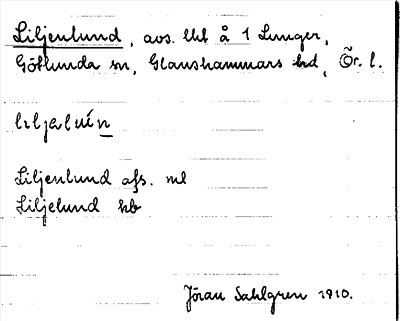 Liljenlund, avs. lhl å 1 Lunger,
Götlunda sn, Glanshammars hd, Ör. l.
liljəlun
Liljenlund afs. ml
Liljelund kb
Jöran Sahlgren 1910.